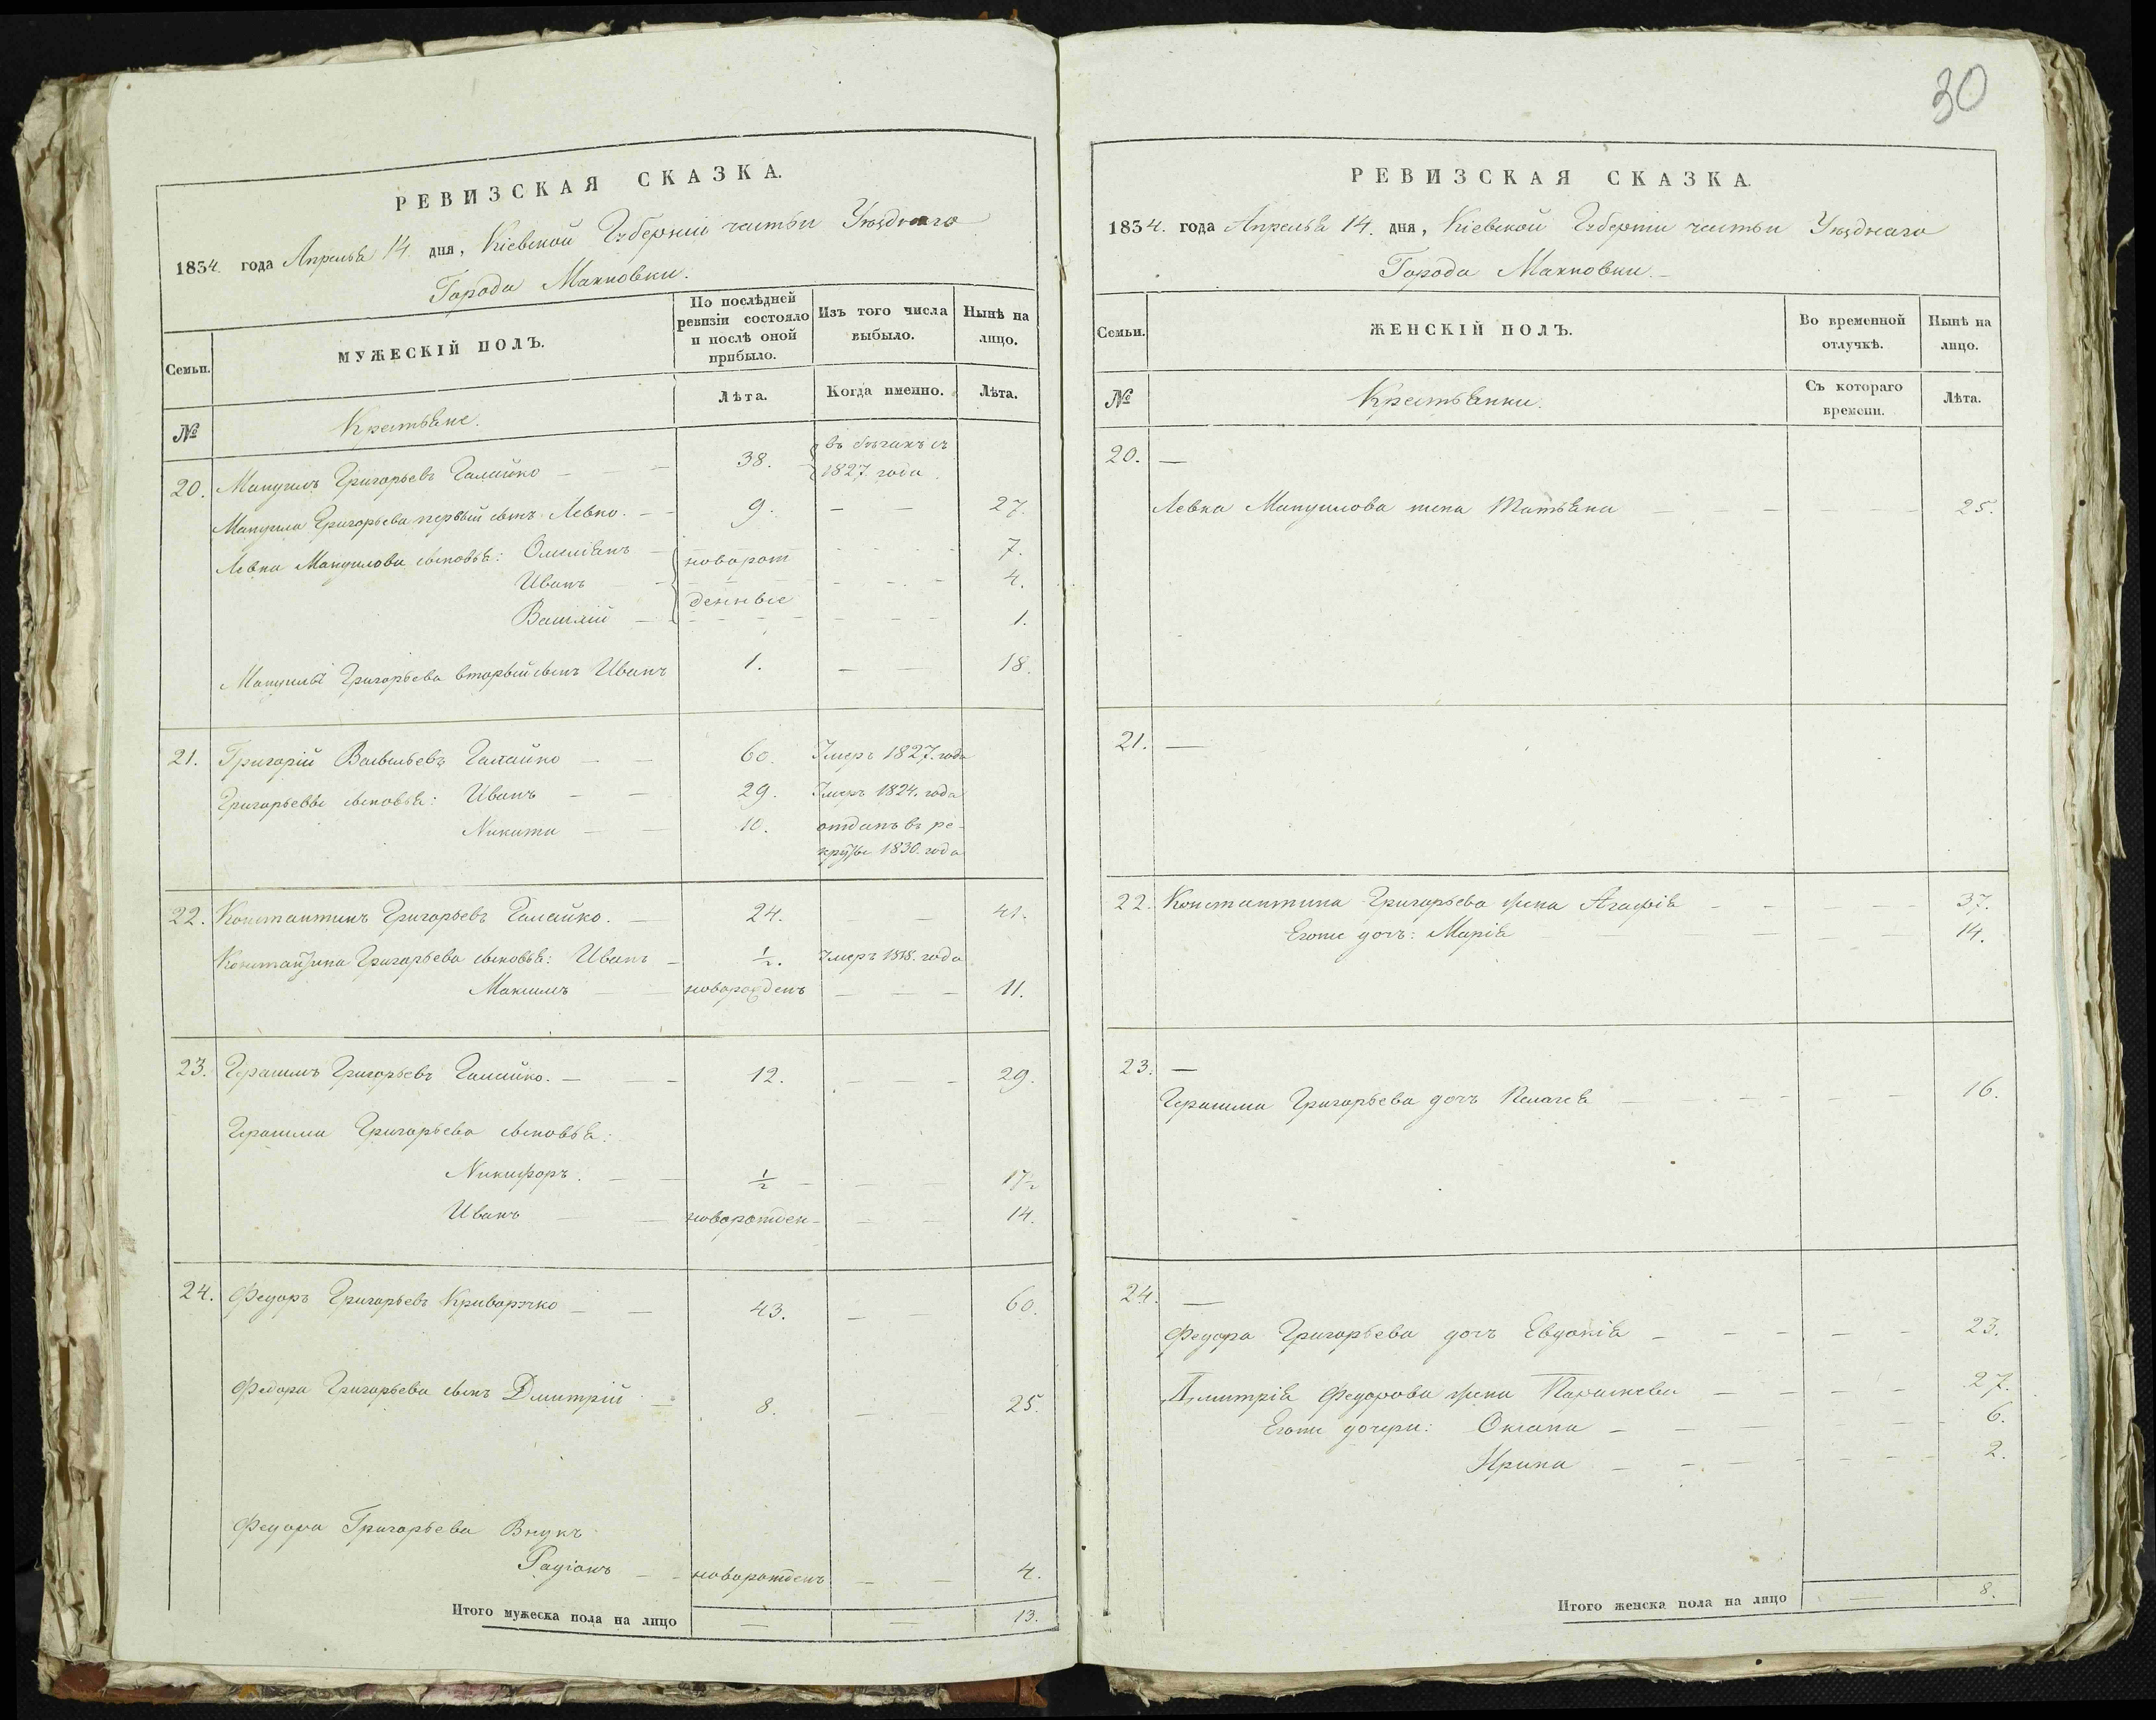 30
РЕВИЗСКАЯ СКАЗКА.
1834. года Апреля 14. дня, Кіевской Губерніи части Уезднаго
Города Махновки.
Семьи.
МУЖЕСКІЙ ПОЛЪ.
По послѣдней ревизіи состояло и послѣ оной прибыло.
Изъ того числа выбыло.
Нынѣ на лицо.
№
Крестьяне.
Лѣта.
Когда именно.
Лѣта.
20. Мануилъ Григорьевъ Галайко — 38. въ бегахъ съ 1827 года
Мануила Григорьева первый сынъ Левко. — 9. — — 27.
Левка Мануилова сыновья: Омелянъ — новорот - - - 7.
Иванъ — - - - 4.
Василій — денные - - - 1.
Мануилы Григорьева вторый сынъ Иванъ 1. — — 18.
21. Григорій Васильевъ Галайко — — 60. Умеръ 1827. года
Григорьевы сыновья: Иванъ — — 29. Умеръ 1824. года
Никита — — 10. отданъ въ ре-
круты 1830. года
22. Константинъ Григорьевъ Галайко. — 24. — 41.
Константина Григорьева сыновья: Иванъ — 1/2. Умеръ 1818. года
Максимъ — — новорожденъ — — — 11.
23. Герасимъ Григорьевъ Галайко. — — - 12. — — — 29.
Герасима Григорьева сыновья:
Никифоръ. — — 1/2 — — — 17 1/2
Иванъ — — новоротден- — — 14.
24. Федоръ Григорьевъ Криворучко — — 43. — 60.
Федора Григорьева сынъ Дмитрій — 8. — — 25.
Федора Григорьева Внукъ
Радіонъ — - новоротденъ — — 4.
Итого мужеска пола на лицо — — 13.
РЕВИЗСКАЯ СКАЗКА.
1834. года Апреля 14. дня, Кіевской Губерніи части Уезднаго
Города Махновки. —
Семьи.
ЖЕНСКІЙ ПОЛЪ.
Во временной отлучкѣ.
Нынѣ на лицо.
№
Крестьянки.
Съ котораго времени.
Лѣта.
20. —
Левка Мануилова жена Татьяна — — — — 25.
21. —
22. Константина Григорьева жена Агафія — - — — — 37.
Егоже дочь: Марія — — — — — 14.
23. —
Герасима Григорьева дочь Пелагея — — - — — — 16.
24. —
Федора Григорьева дочь Евдокія — — - — — 23.
Дмитрія Федорова жена Параскева — — — — 27.
Егоже дочери: Оксана — — - - - 6.
Ирина — - — - - - 2.
Итого женска пола на лицо — 8.